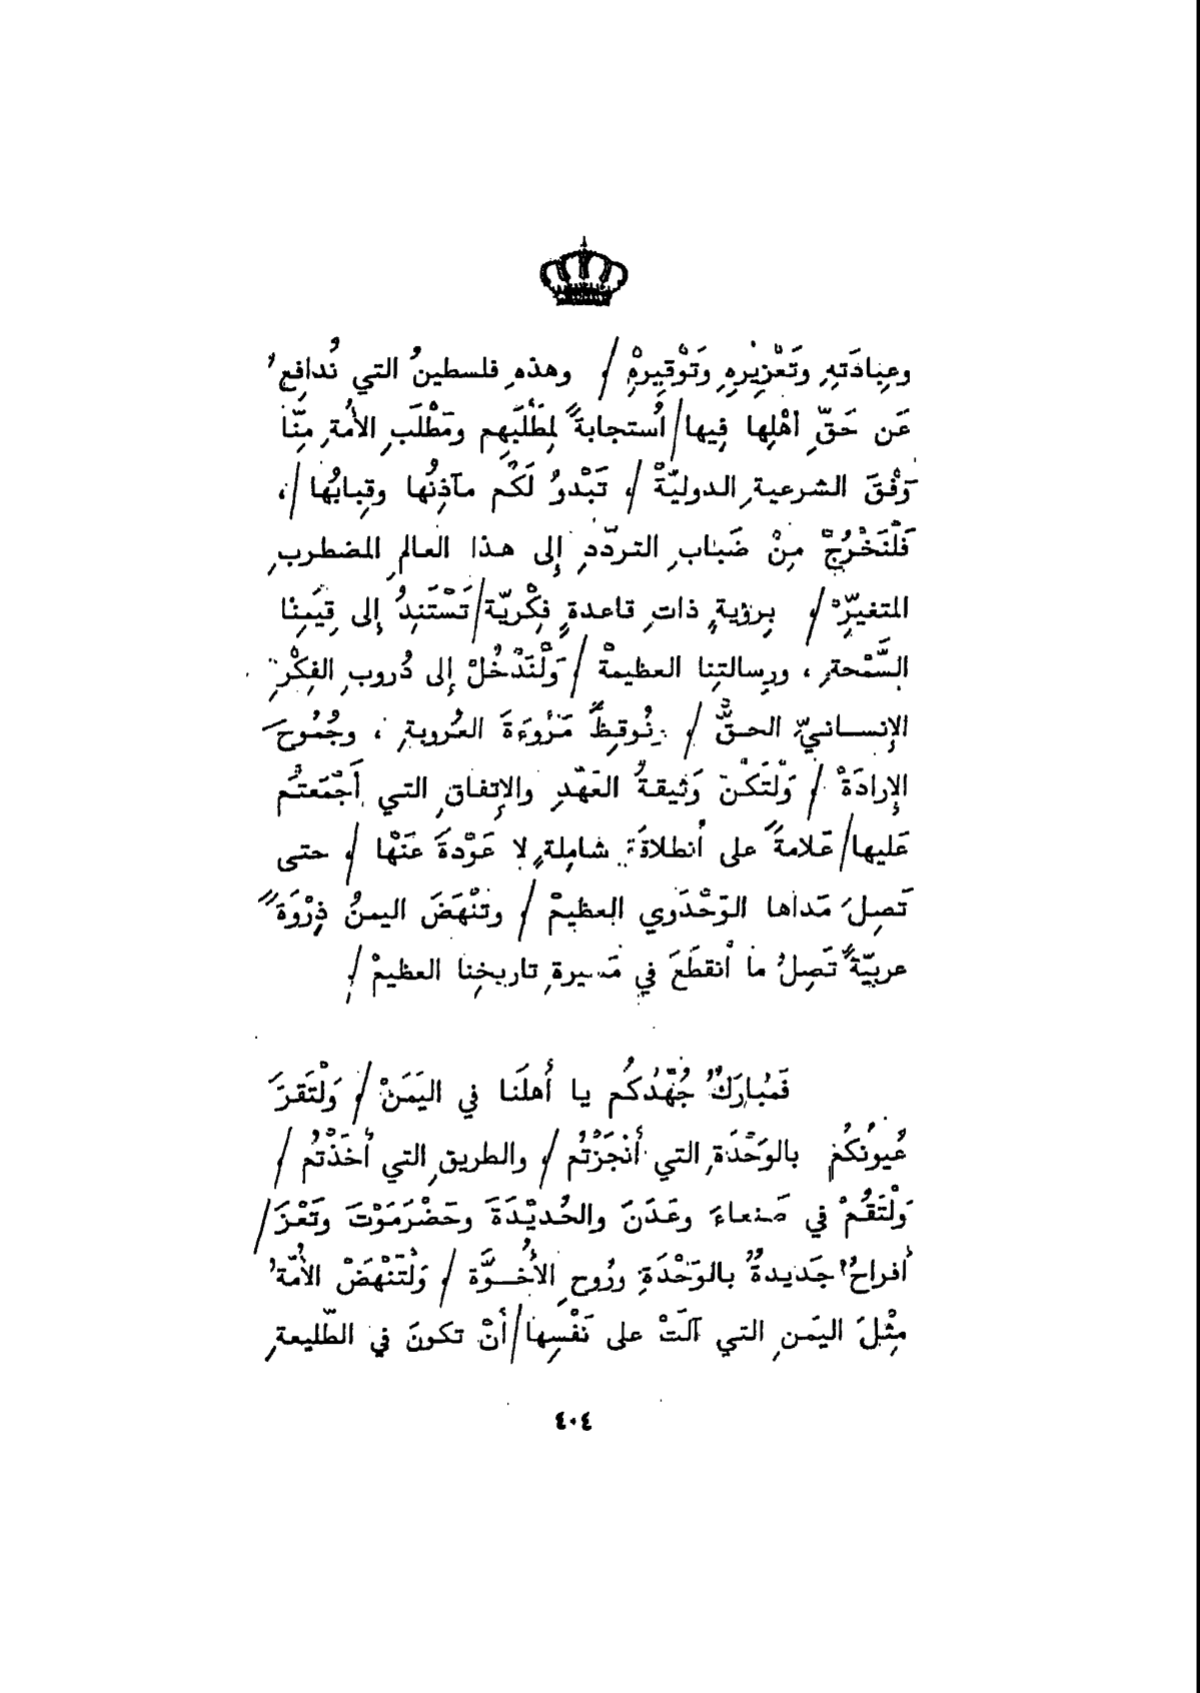 وعِبادَتهِ وتَعْزِيْرهِ وتَوْقِيرهْ / وهذهِ فلسطينُ التي نُدافِعُ
عَن حَقِّ أهْلِها فِيها / اُستجابةً لِمَطْلَبِهم ومَطْلَبِ الأُمةِ مِنّا
وَفْقَ الشرعيةِ الدوليّةْ /، تَبْدوُ لَكُم مآذِنُها وقِبابُها /،
فَلْنَخْرُجْ مِنْ ضَبابِ التردّدِ إلى هذا العالمِ المضطربِ
المتغيّرْ /، بِرؤيةٍ ذاتِ قاعدةٍ فِكْريّة / تَسْتَنِدُ إلى قِيَمِنا
السَّمْحةِ ، ورِسالتِنا العظيمةْ / وَلْنَدْخُلْ إلى دُروبِ الفِكْرِ
الإنسانيِّ الحقُّ /، نُوقِظُ مَرُوءَةَ العُروبةِ ، وجُمُوحَ
الإرادَةْ /، وَلْتَكُنْ وَثيقةُ العَهْدِ والإتفاقِ التي أجْمَعتُم
عَليها / عَلامةً على اُنطلاقَةٍ شامِلةٍ لا عَوْدةَ عَنْها /، حتى
تَصِلَ مَداها الوَحْدَوي العظيمْ /، وتنْهَضَ اليمنُ ذِرْوَةً
عربيّةً تَصِلُ ما اُنقطَعَ في مَسيرةِ تاريخِنا العظيمْ /.
فَمُبارَكٌ جُهْدُكُم يا أهلَنا في اليَمَنْ /، وَلْتَقرَّ
عُيونُكُمْ بالوَحْدَةِ التي أنْجَزْتُم /، والطريقِ التي أخَذْتُم /
وَلْتَقُمْ في صَنعاءَ وعَدَنَ والحُديْدَةَ وحَضْرَمَوْتَ وتَعْزَ /
أفراحٌ جَديدةٌ بالوَحْدَةِ ورُوحِ الأُخُوَّة /، وَلْتَنْهَضْ الأمّةُ
مِثْلَ اليَمنِ التي آلَتْ على نَفْسِها / أنْ تكونَ في الطّليعةِ
٤٠٤